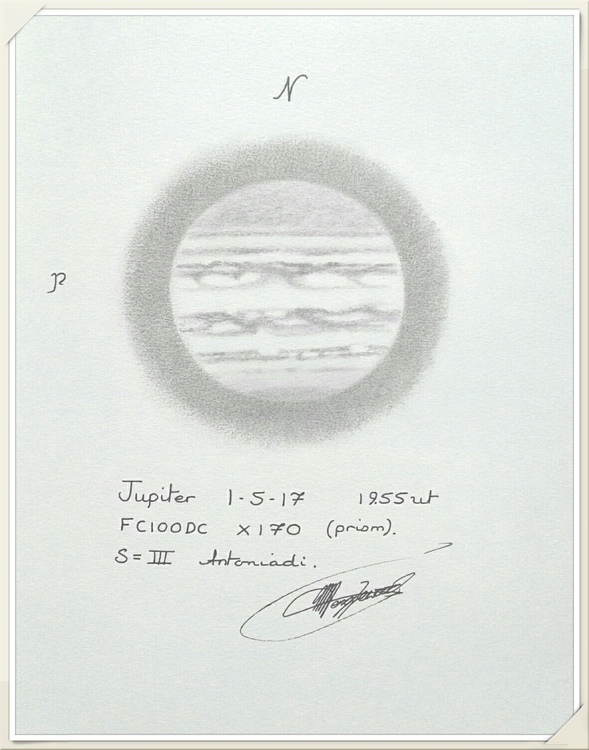 N
P
Jupiter 1-5-17 19.55ut
FC100DC x170 (prism).
S=III Antoniadi.